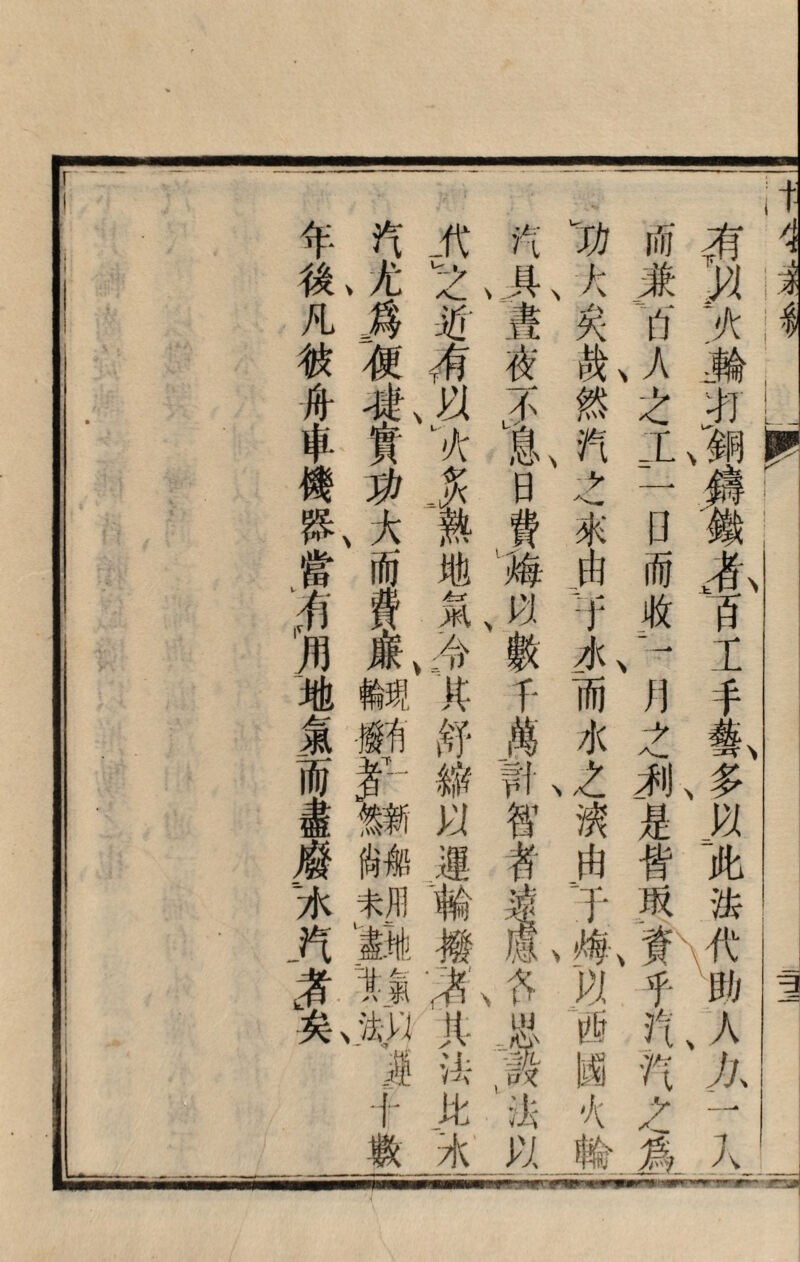 博物新編
有以火輪打銅鑄鐵者、百工手藝、多以此法代助人力、一人
而兼百人之工、一日而收一月之利、是皆取資乎汽、汽之爲
功大矣哉、然汽之來由于水、而水之滚由于煤、以西國火輪
汽具、晝夜不息、日費煤以數千萬計、智者遠慮、各思設法以
代之、近有以火炙熱地氣、令其舒縮以運輪撥者、其法比水
汽尤爲便捷、實功大而費廉、現有一新船用地氣以運
輪撥者然尚未盡其法
十數
年後、凡彼舟車機器、當有用地氣而盡廢水汽者矣、